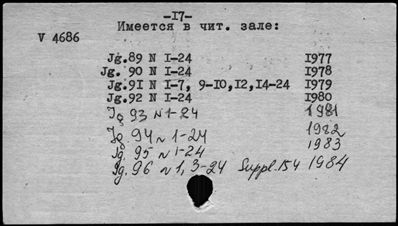 -17-
Имеется в чит. зале:
V 4686
Jg.89 N I-24 1977
Jg. 90 N I-24 1978
Jg.91 N I-7, 9-I0,I2,I4-24 1979
Jg.92 N I-24 1980
Jg 93 N 1-24 1981
Jg 94 N 1-24 1982
Jg. 95 N 1-24 1983
Jg. 96 N 1, 3-24 Suppl. 154 1984